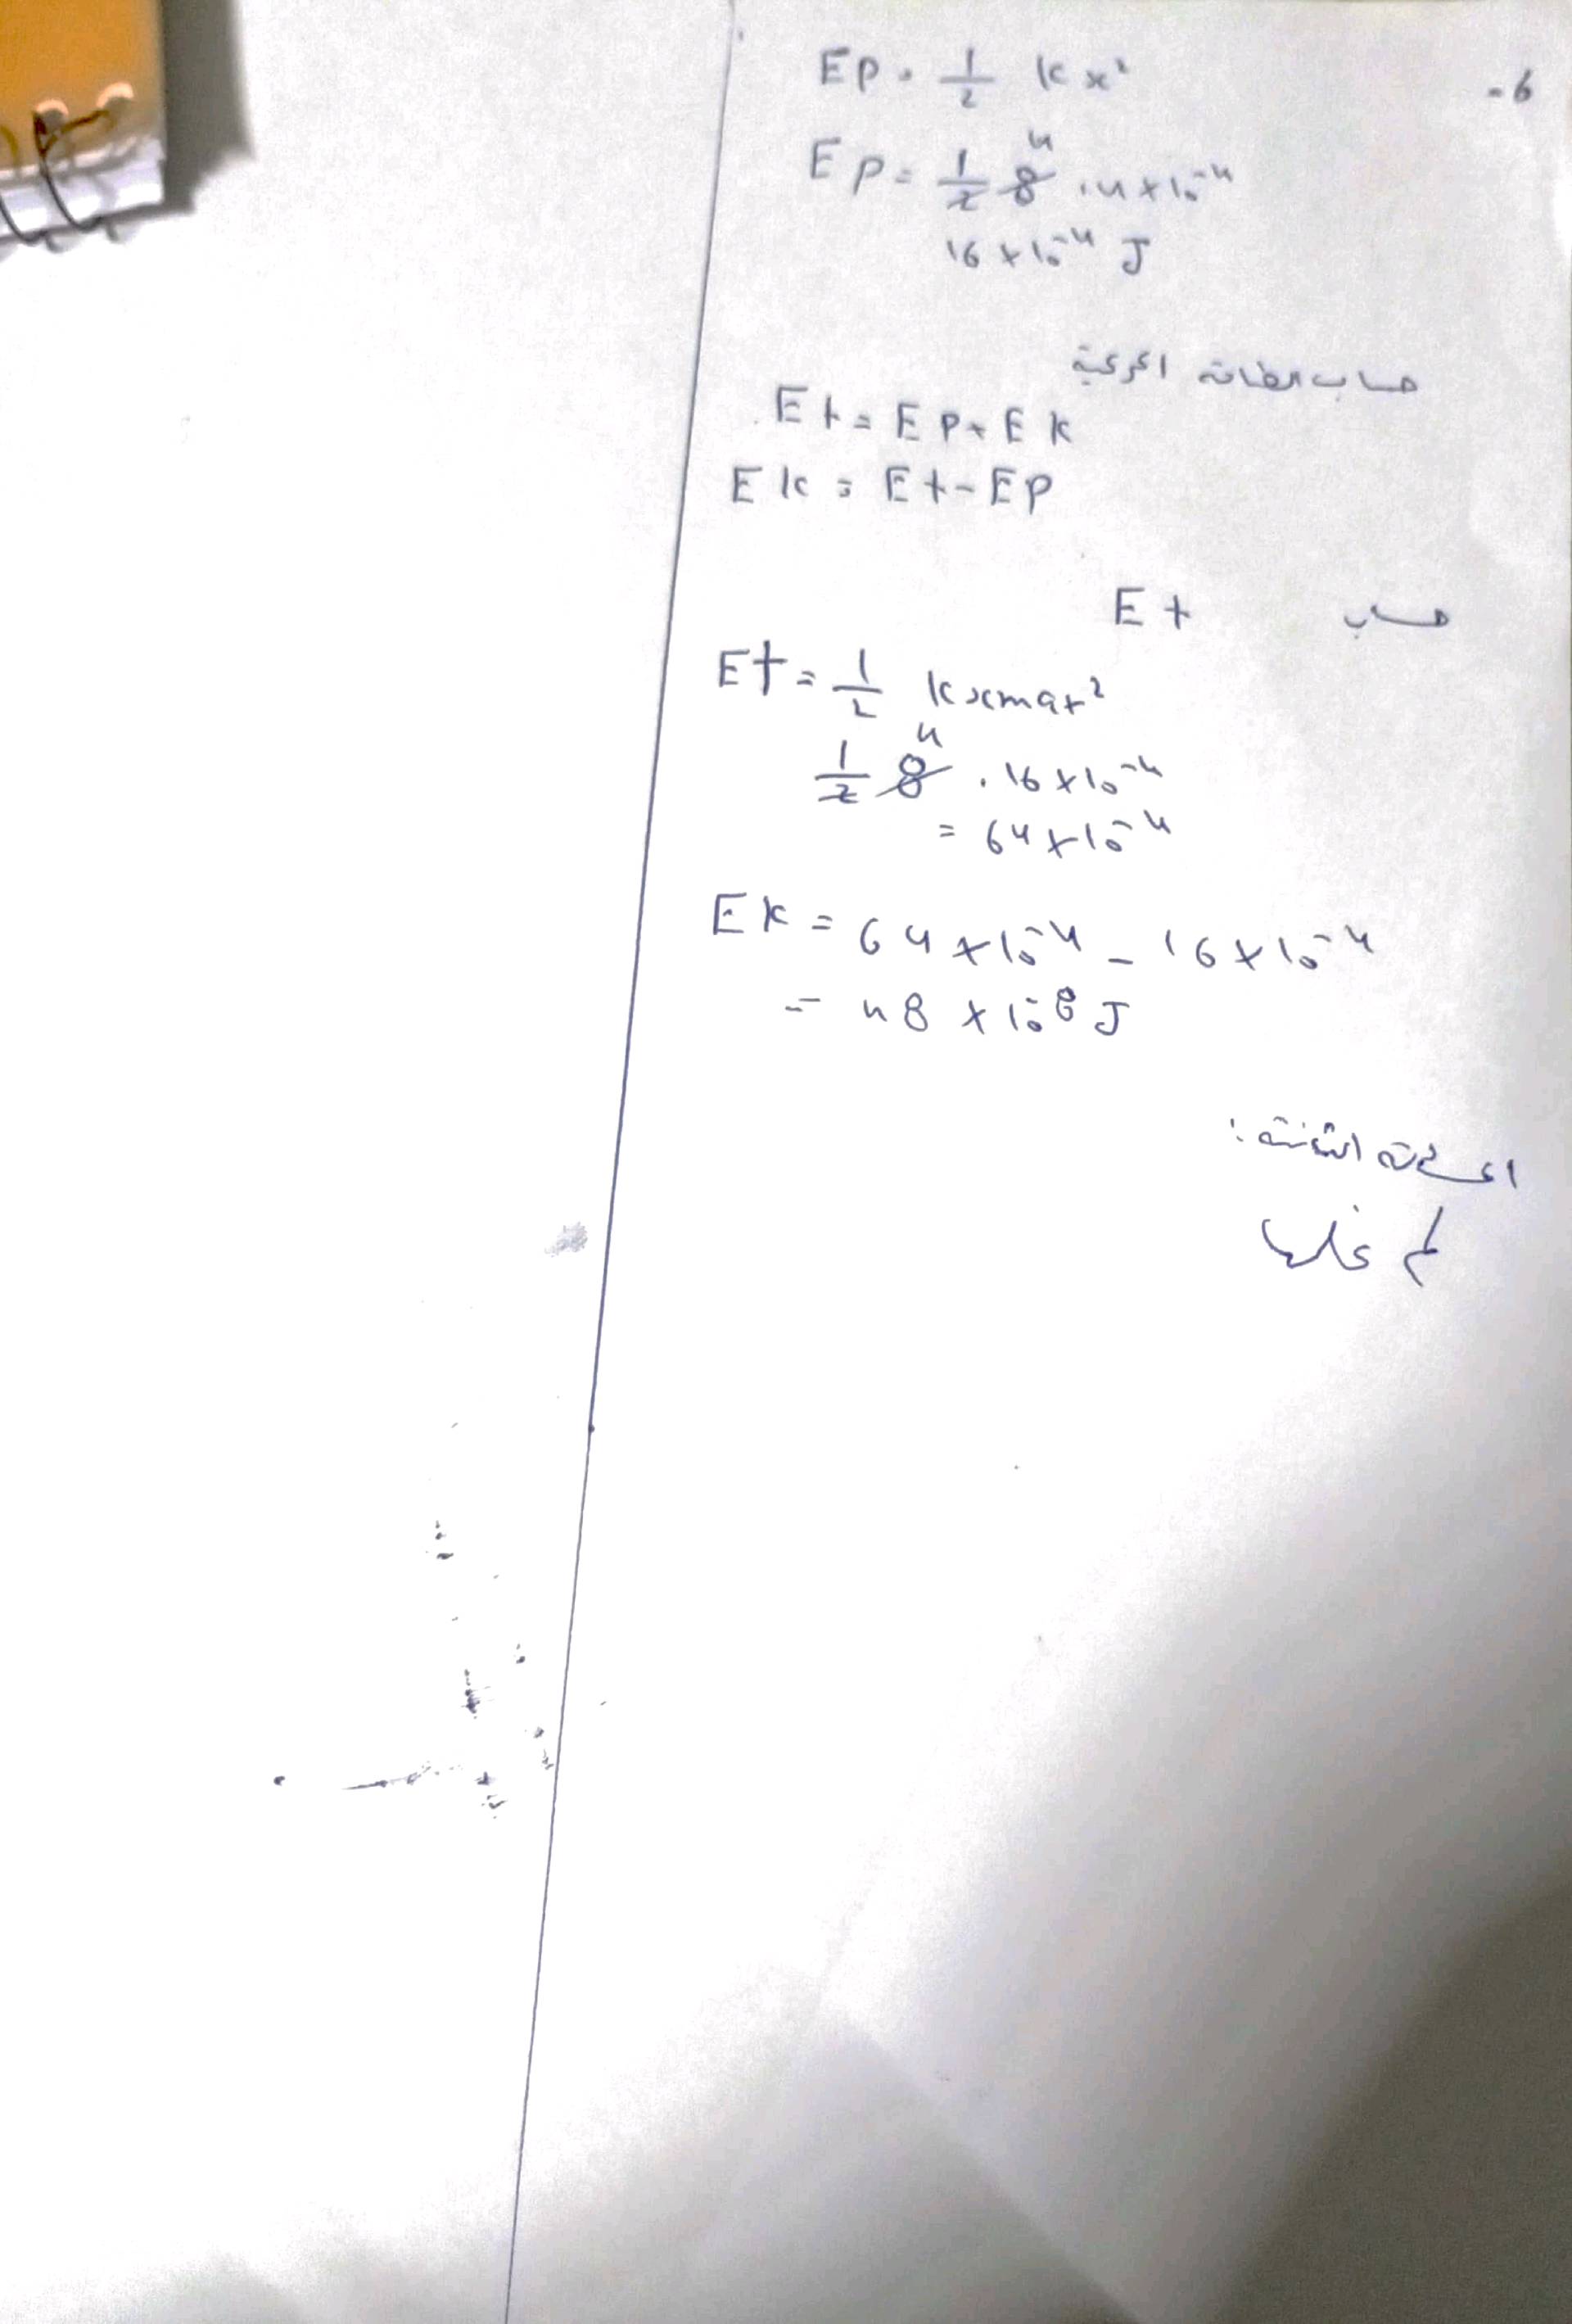 6-
Ep = 1/2 k x²
Ep = 1/2 8 4 . 4 × 10⁻⁴
16 × 10⁻⁴ J
حساب الطاقة الحركية
Et = Ep + Ek
Ek = Et - Ep
حساب Et
Et = 1/2 k xmax²
1/2 8 4 . 16 × 10⁻⁴
= 64 × 10⁻⁴
Ek = 64 × 10⁻⁴ - 16 × 10⁻⁴
= 48 × 10⁻⁸ J
الثانية:
لم